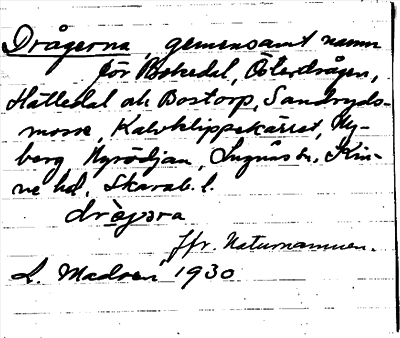 Drågerna, gemensamt namn
för Bokedal, Österdrågen,
Hättedal och Bostorp, Sandryds-
mosse, Kalvklippekärret, Ny-
berg Nyrödjan, Lugnås sn, Kin-
ne hd, Skarab. l.
drågɔra
Jfr. Naturnamnen.
L. Madsen, 1930